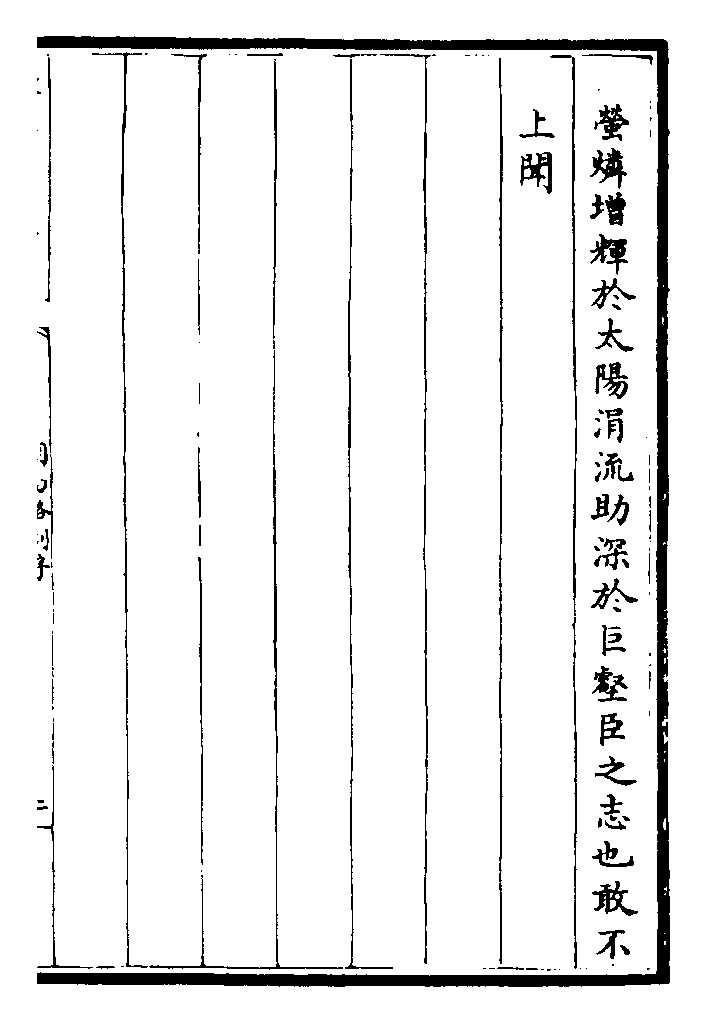 螢燐增輝於太陽涓流助深於巨壑臣之志也敢不
上聞